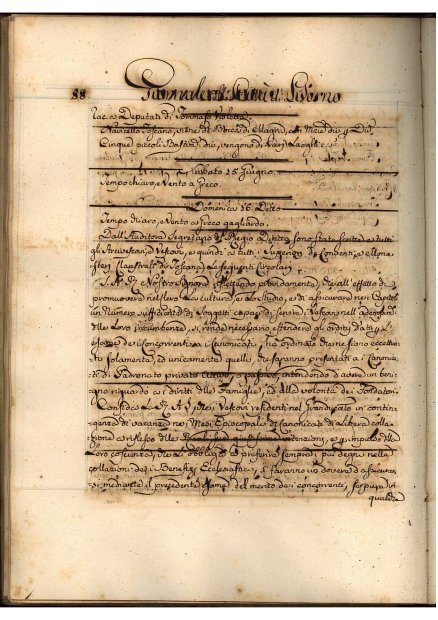 88
Livorno
Deputati di Tommaso
Navicello Toscano, viene di Bocca di Magra, con
Cinque piccoli Bastim.ti che vengono da Varj Luoghi
Sabato 25 Giugno
Tempo chiaro, e Vento a Greco.
Domenica 26 Detto
Tempo chiaro, e Vento a Greco gagliardo.
Dall'Auditore Segretario del Regio Diritto sono state scritte a tutti
gli Arcivescovi, e Vescovi, e quindi a tutti i Superiori di Conventi, e Mona-
steri Claustrali di Toscana le seguenti Circolari
S. A. R. Nostro Signore riflettendo providamente, che all'effetto di
promuovere nel Clero la cultura, e lo Studio, e di assicurare nei Capitoli
un Numero sufficiente di Soggetti capaci di servire i Vescovi nell'adempim.to
delle Loro incumbenze, si rende necessario estendere gli ordini dati
esame dei Concorrenti ai Canonicati, ha ordinato che ne siano eccettua-
ti solamente, ed unicamente quelli, che saranno presentati a i Canonica-
ti di Padronato privato attivo, o passivo, intendendo d'avere un beni-
gno riguardo a i diritti delle Famiglie, ed alla volontà dei Fondatori.
Confida la R. A. S. che i Vescovi residenti nel Granducato in contin-
genza di vacanze nei Mesi Episcopali di Canonicati di Libera colla-
zione
Loro coscienza, che gli obbliga a preferire sempre i più degni nella
collazione dei Benefizj Ecclesiastici, si faranno un dovere d'assicurar-
si mediante il precedente esame del merito dei concorrenti,
qualora